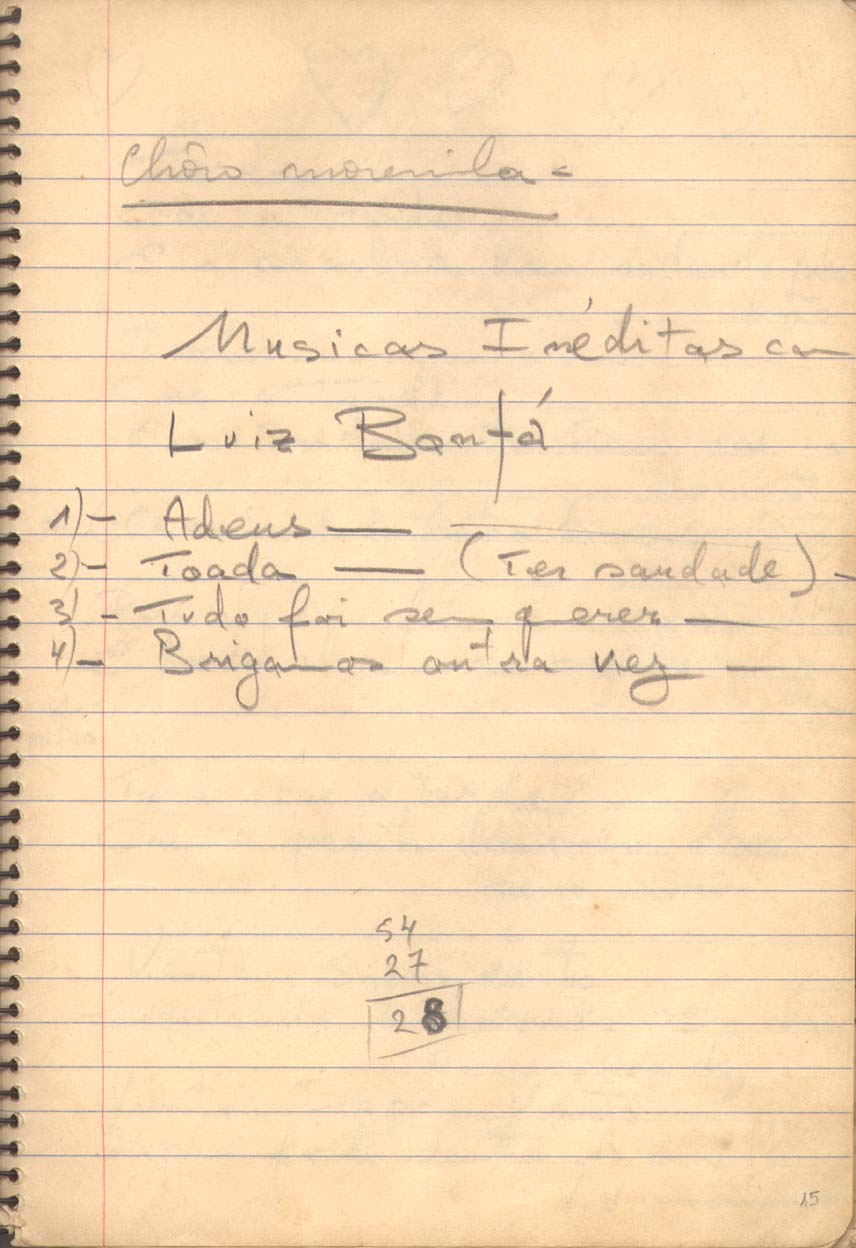 Chôro morenila =
Musicas Inéditas com
Luiz Bonfá
1) - Adeus —
2) - Toada — (Ter saudade) -
3) - Tudo foi sem querer —
4) - Brigamos outra vez —
54
27
28
15